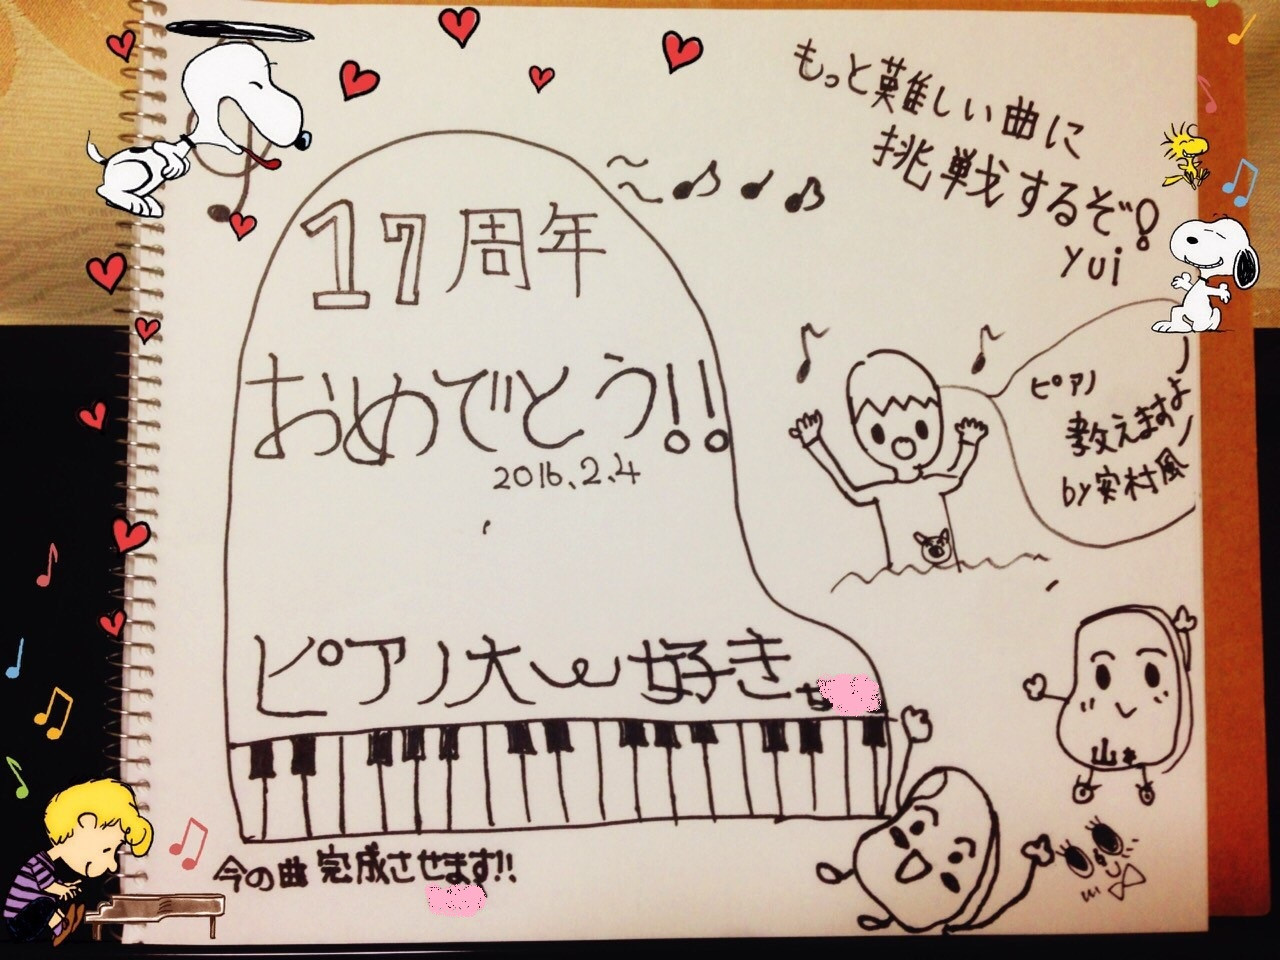 もっと難しい曲に
挑戦するぞ!
yui
17周年
おめでとう!!
2016.2.4
ピアノ
教えますよ
ピアノ大好き
今の曲 完成させます!!